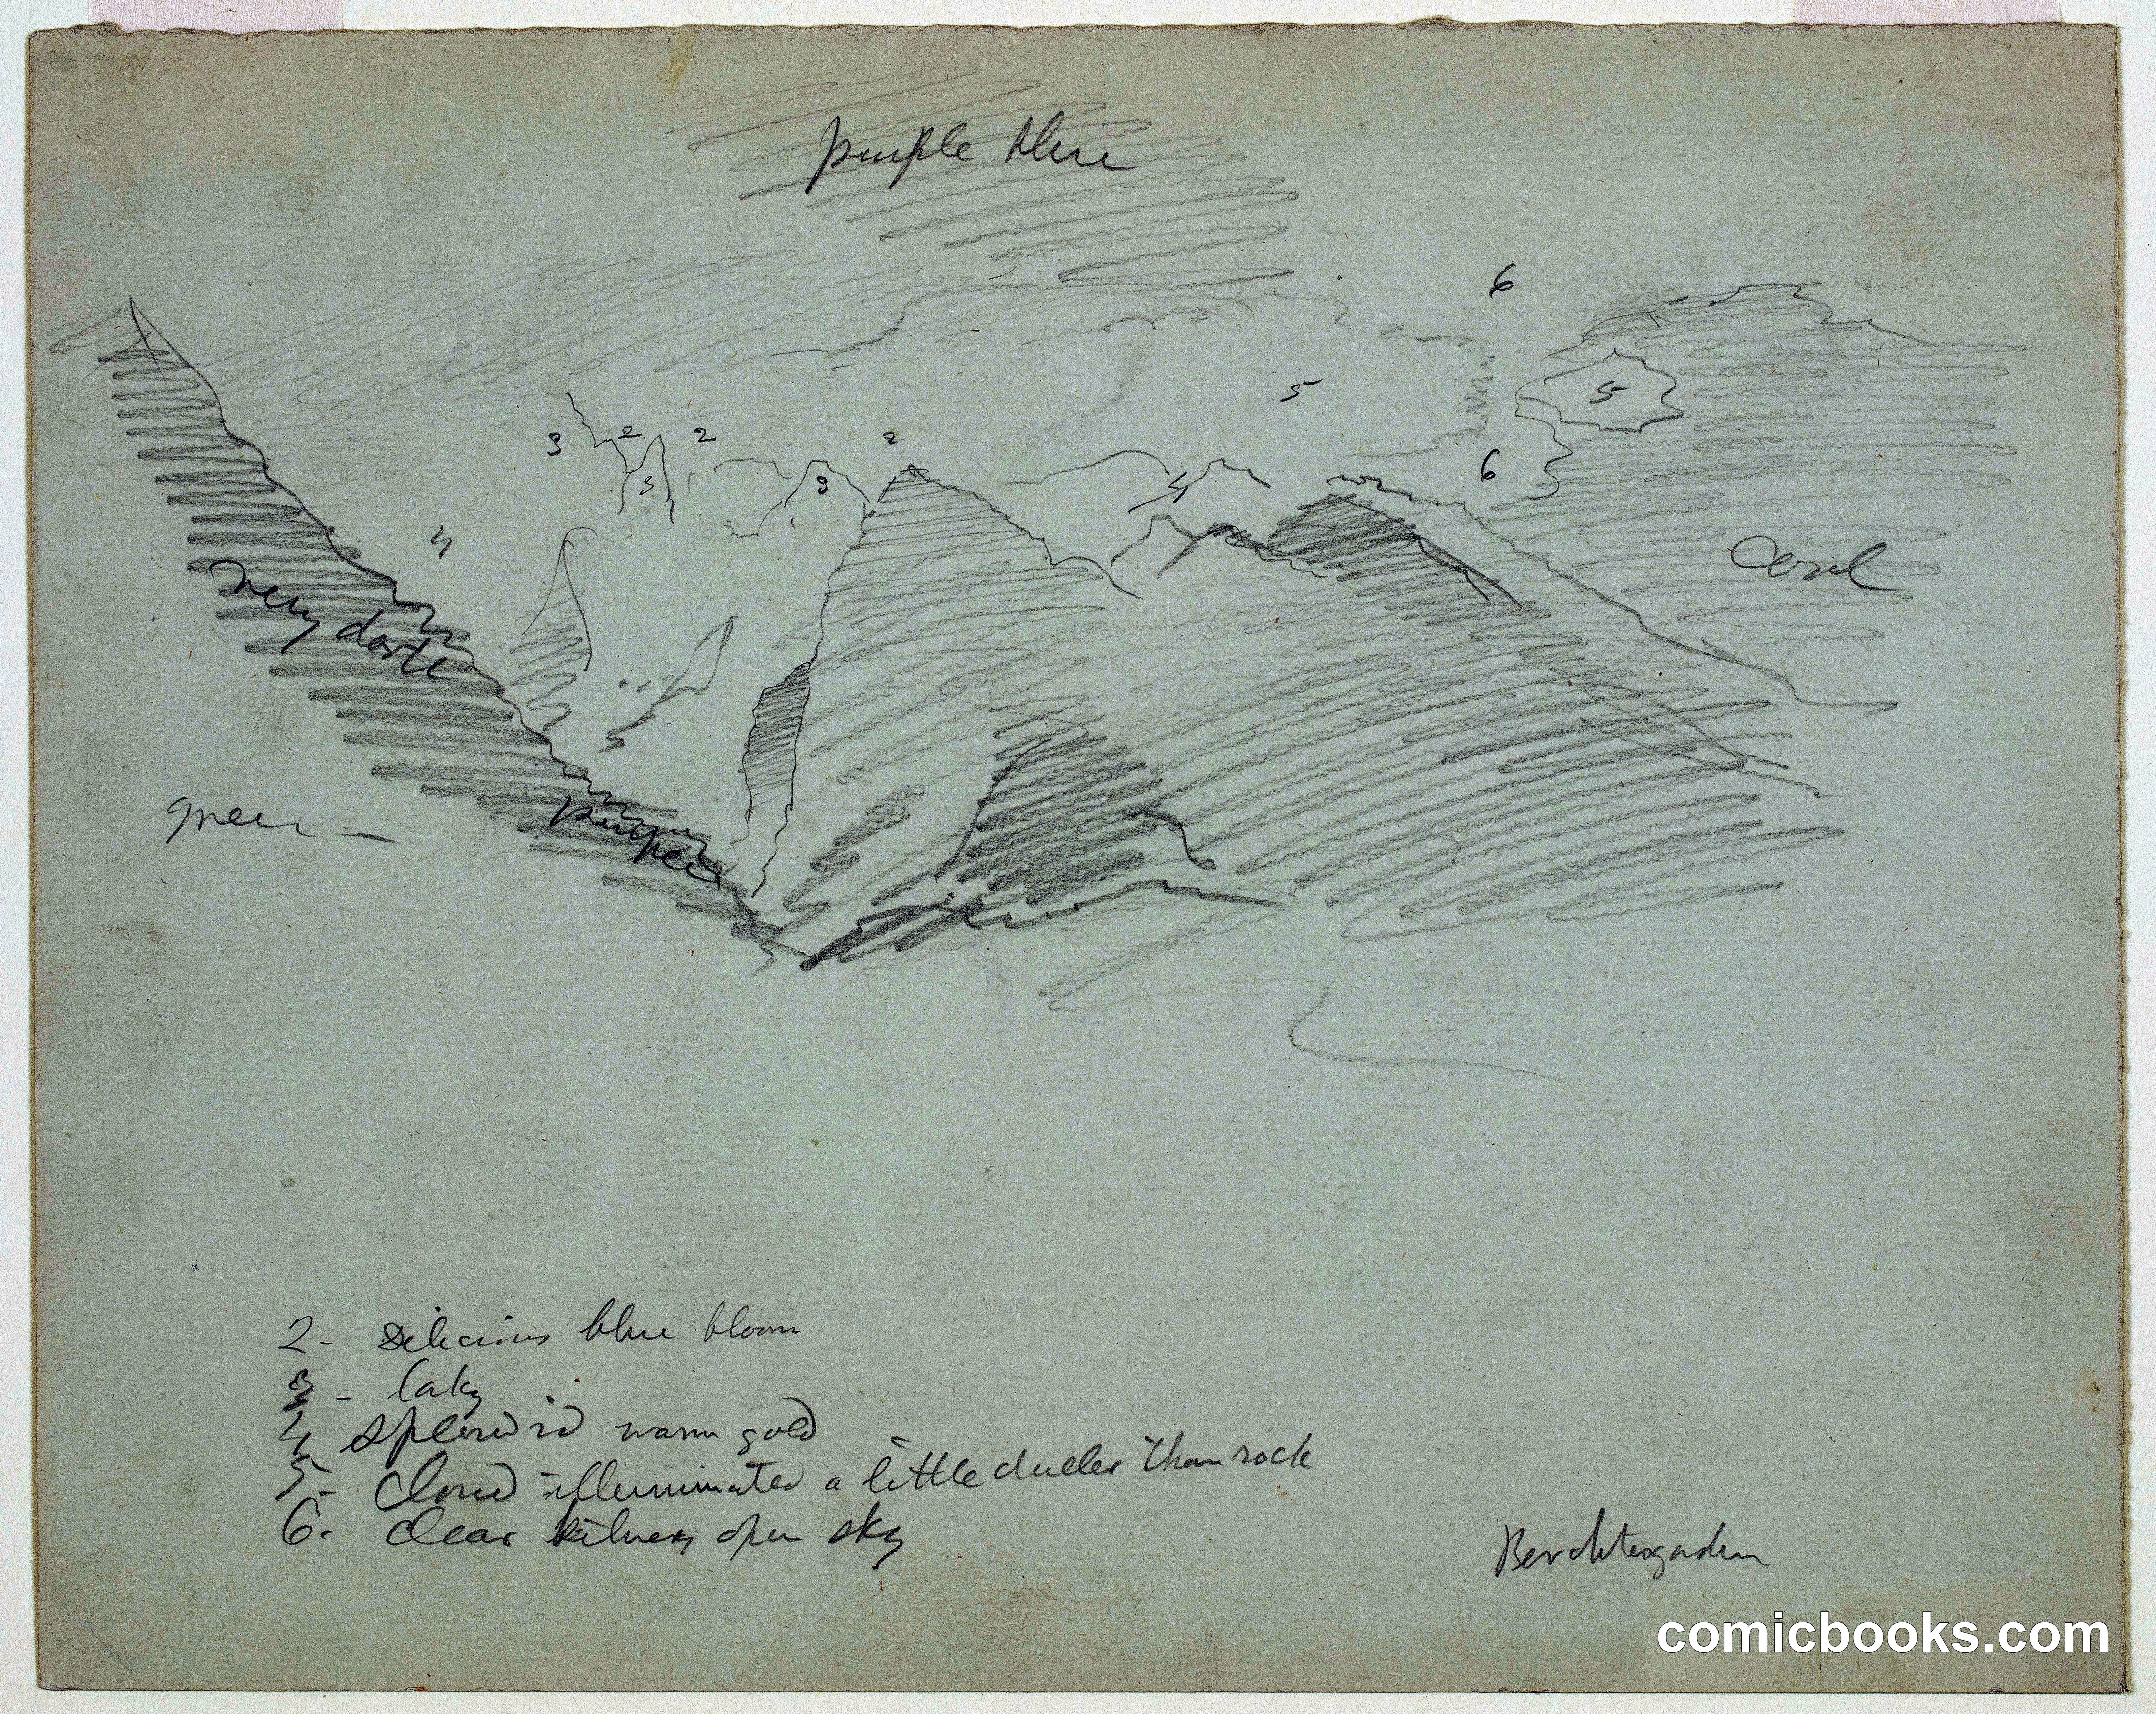 purple blue
6
5
5
3 2 2 2
3 3 4
6
4
Cool
very dark
green —
purple
2- delicious blue bloom
3 - laky
4 splendid warm gold
5- Cloud illuminated a little duller than rock
6- Clear silvery open sky
Berchtesgaden
comicbooks.com